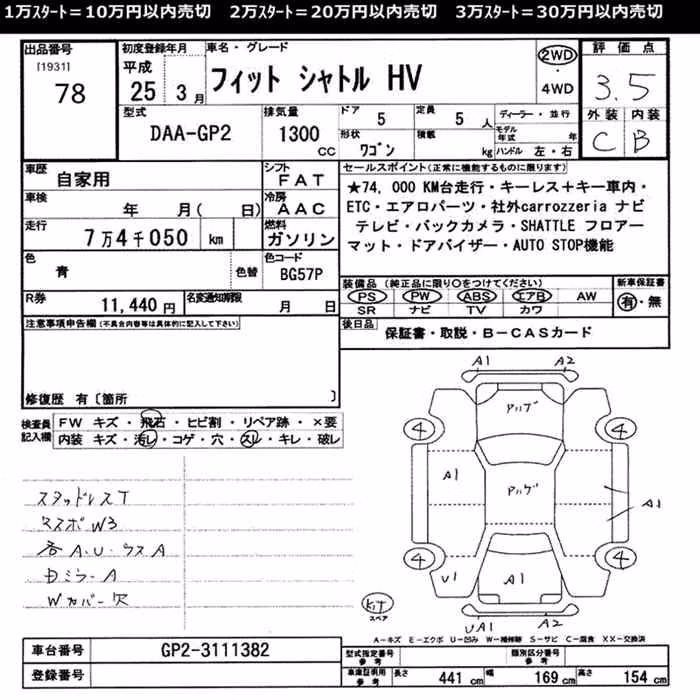 1万ｽﾀｰﾄ＝10万円以内売切　2万ｽﾀｰﾄ＝20万円以内売切　3万ｽﾀｰﾄ＝30万円以内売切
出品番号
[1931]
78
初度登録年月
平成
25 3月
車名・グレード
フィット シャトル HV
2WD
・
4WD
評価点
3.5
外装 内装
C B
型式
DAA-GP2
排気量
1300
CC
ドア
5
定員
5 人
形状
ﾜｺﾞﾝ
積載
kg
ディーラー・並行
モデル年式 年
ハンドル 左・右
車歴
自家用
シフト
FAT
車検
年 月( 日)
冷房
AAC
走行
7万4千050 km
燃料
ガソリン
色
青
色替
色コード
BG57P
R券
11,440円
名変通知期限
月 日
セールスポイント(正常に機能するものに限ります)
★74,000KM台走行・キーレス＋キー車内・
ETC・エアロパーツ・社外carrozzeria ナビ
テレビ・バックカメラ・SHATTLE フロアー
マット・ドアバイザー・AUTO STOP機能
装備品(純正品に限り○をつけてください)
PS PW ABS エアB AW
SR ナビ TV カワ
新車保証書
有・無
後日品
保証書・取説・B-CASカード
注意事項申告欄(不具合内容等は具体的に記入して下さい)
修復歴 有〔箇所 〕
検査員記入欄
FW キズ・飛石・ヒビ割・リペア跡・×要
内装 キズ・汚レ・コゲ・穴・スレ・キレ・破レ
スタッドレスT
ヌスボW3
各A.U.ウスA
日ミラーA
Wカバー欠
A1 A2
4 4
A1
A1
4 4
U1
A1
UA1 A2
スペア
A－キズ E－エクボ U－凹み W－補修跡 S－サビ C－腐食 XX－交換済
車台番号
GP2-3111382
登録番号
型式指定番号
参考
類別区分番号
参考
車庫証明用
参考
長さ 441 cm 幅 169 cm 高さ 154 cm